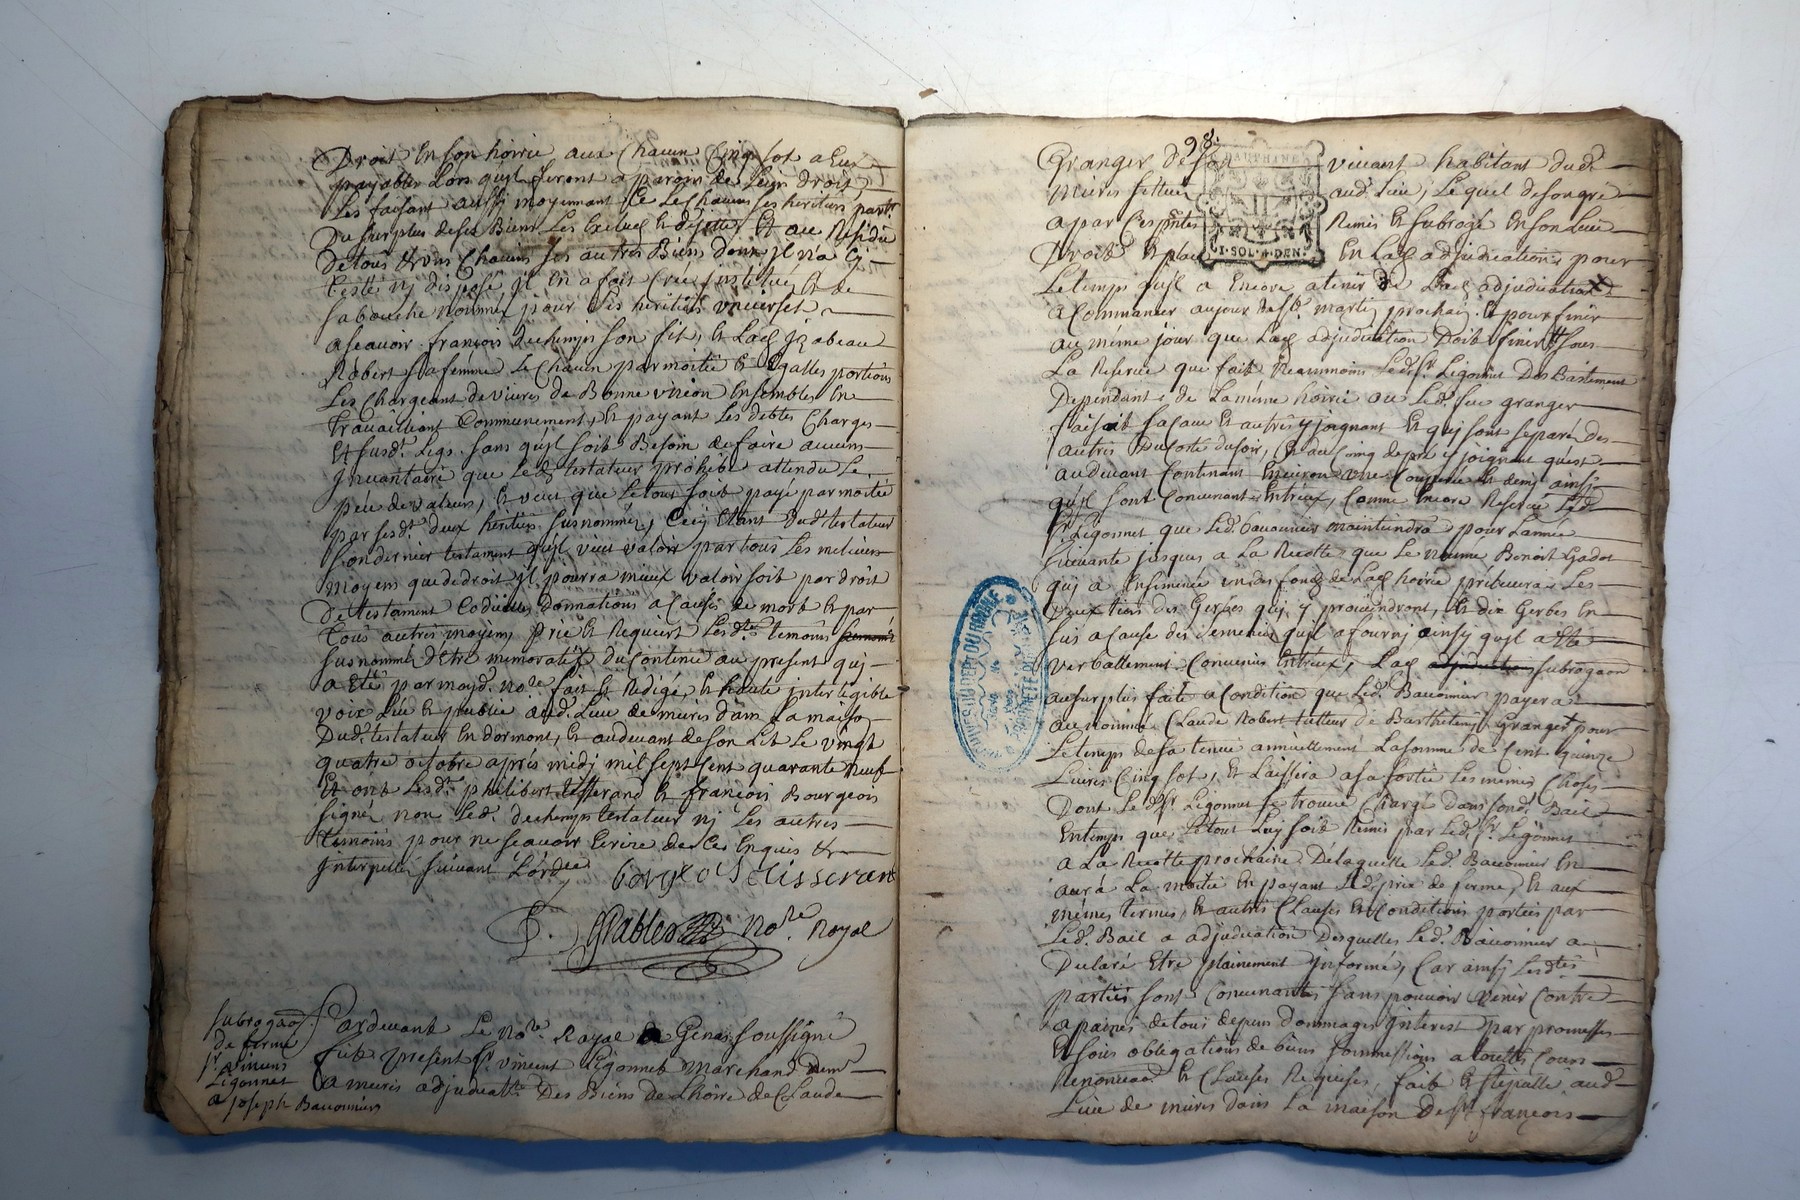 Droit En son hoirie aux Chacun Cinq sol a Eux
payables Lors quÿl feront apparoir de Leurs droits
Les faisant aussi moyennant ce Le Chacun ses heritiers partrs
Du surplus de ses Biens Les Exclud Et dejette Et au Residu
De tous & uns Chacuns ses autres Biens dont Jl n'a cy
testé nj disposé jl En a fait Crée institué Et de
sa bouche nommé pour ses heritiers universel
a scavoir françois dechemps son fils, Et Lad Jzabeau
Robert sa femme Le Chacun par moitié Et Egalles portions
Les Chargeant de vivres de Bonne union Ensembles En
travailliant Communement, Et payant Les debtes Charges
Et susdt. Legs. sans quÿl soit Besoin de faire aucun
Jnvantaire que Led testateur prohibe attendu Le
peu de valeur, Et veut que Le tout soit payé par moitié
par sesdt. deux heritiers susnommés, Cecÿ Etant dud. testateur
son dernier testament quÿl veut valoir par tous Les melieurs
moyens que de droit jl pourra mieux valoir soit par droit
De testament Codicilles, Donnations a Causes de mort Et par
Tous autres moyens, prie Et Requiert Lesdts temoins
susnommé d'Etre memoratifs du Contenu au present quj
a Eté par moyd. no.re fait Et Redigé, Et haute intelegible
voix Leu Et publié aud. Lieu de mures dans La maison
Dud. testateur En dormont, Et audevant de son Lit Le vingt
quatre octobre aprés midj mil sept Cent quarante neuf
Et ont Lesdt. philibert tisserand Et françois Bourgeois
signé non Led. dechemps testateur nj Les autres
temoins pour ne scavoir Ecrire de ce Enquis &
Interpellé suivant L'orde
borgoj tisseran
P. Grables no.re Royal
subrogaon
de ferme
sr. vincens
Ligonnet
a joseph Bavonnier
Pardevant Le no.re Royal a Genas soussigné
fut present sr. vincent Ligonnet marchand demt
a mures adjudicatre Des Biens de L'hoirie de Claude
98.
DAUPHINE
I·SOL·4·DEN·
Granger de son vivant habitant dud.
mures sittués aud. Lieu, Lequel de son gré
a par Ces pntes Remis Et subrogé En son Lieu
Droits Et place En Lad adjudication pour
Le temps quÿl a Encore a tenir de Lad adjudication
a Commancer au jour de st. martin prochain Et pour finir
au même jour que Lad adjudication Doit finir sous
La Reserve que fait Neanmoins Led. sr. Ligonnet Des Bastiment
Dependants de La même hoirie ou Led. feu granger
faisoit sa Cave Et autres y joignant Et quj sont separé des
autres Du Coté du soir, Et au Cinq de pré y joignant quest
audevant Contenant Environ une Couperée Et demy ainsy
quÿl sont Convenant Entreux, Comme Encore Reserve Led.
sr. Ligonnet que Led. bavonnier maintiendra pour L'année
suivante jusques a La Recolte que Le nomme Benoit Gadot
quj a Ensemencé un des fonds de Lad hoirie prelevera Les
Deux tiers des Gerbes quj y proviendront, Et dix Gerbes En
sus a Cause des semences quÿl a fourny ainsy quÿl a Eté
verballement Convenus Entreux, Lad subrogaon
au surplus faite a Condition que Led. Bavonnier payera
au nommé Claude Robert tutteur de Barthelemy Granger pour
Le temps de sa tenue annuellement La somme de Cent quinze
Livres Cinq sol, Et Laissera a sa sortie Les mêmes Choses
Dont Led. sr. Ligonnet se trouve Chargé dans sond. Bail
En temps que Le tout Luy soit Remis par Led. sr. Ligonnet
a La Recolte prochaine De Laquelle Led. Bavonnier En
aura La moitié En payant Led. prix de ferme, Et aux
mémes termes, Et autres Clauses Et Conditions portées par
Led. Bail a adjudication Desquelles Led. Bavonnier a
Declaré Etre plainement Jnformé, Car ainsy Lesdtes
parties sont Convenantes sans pouvoir venir Contre
a paines de tous depens Dommages Jnterest par promesses
Et sous obligations de biens soumissions a touttes Cours
Renonciaon. Et Clauses Requises, fait Et stipullé aud.
Lieu de mures dans La maison de sr. françois